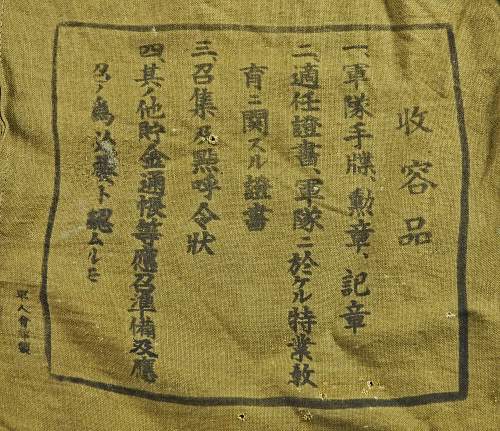 收容品
一、軍隊手牒、勲章、記章
二、適任證書、軍隊ニ於ケル特業敎
育ニ関スル證書
三、召集及點呼令狀
四、其ノ他貯金通帳等應召準備及應
召ノ爲必要ト認ムルモ
軍人會製